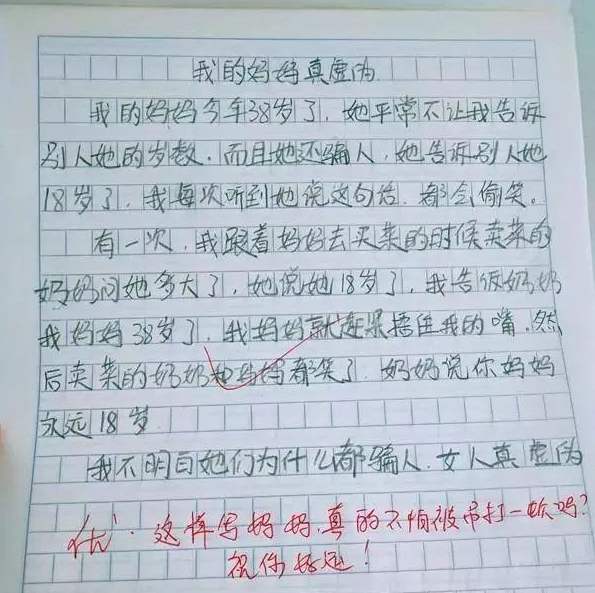 我的妈妈真虚伪
我的妈妈今年38岁了，她平常不让我告诉
别人她的岁数．而且她还骗人，她告诉别人她
18岁了，我每次听到她说这句话．都会偷笑。
有一次，我跟着妈妈去买菜的时候卖菜的
奶奶问她多大了，她说她18岁了，我告诉奶奶
我妈妈38岁了，我妈妈就赶紧捂住我的嘴．然
后卖菜的奶奶和妈妈都笑了．奶奶说你妈妈
永远18岁
我不明白她们为什么都骗人．女人真虚伪
优．这样写妈妈，真的不怕被吊打一顿吗？
祝你好运！